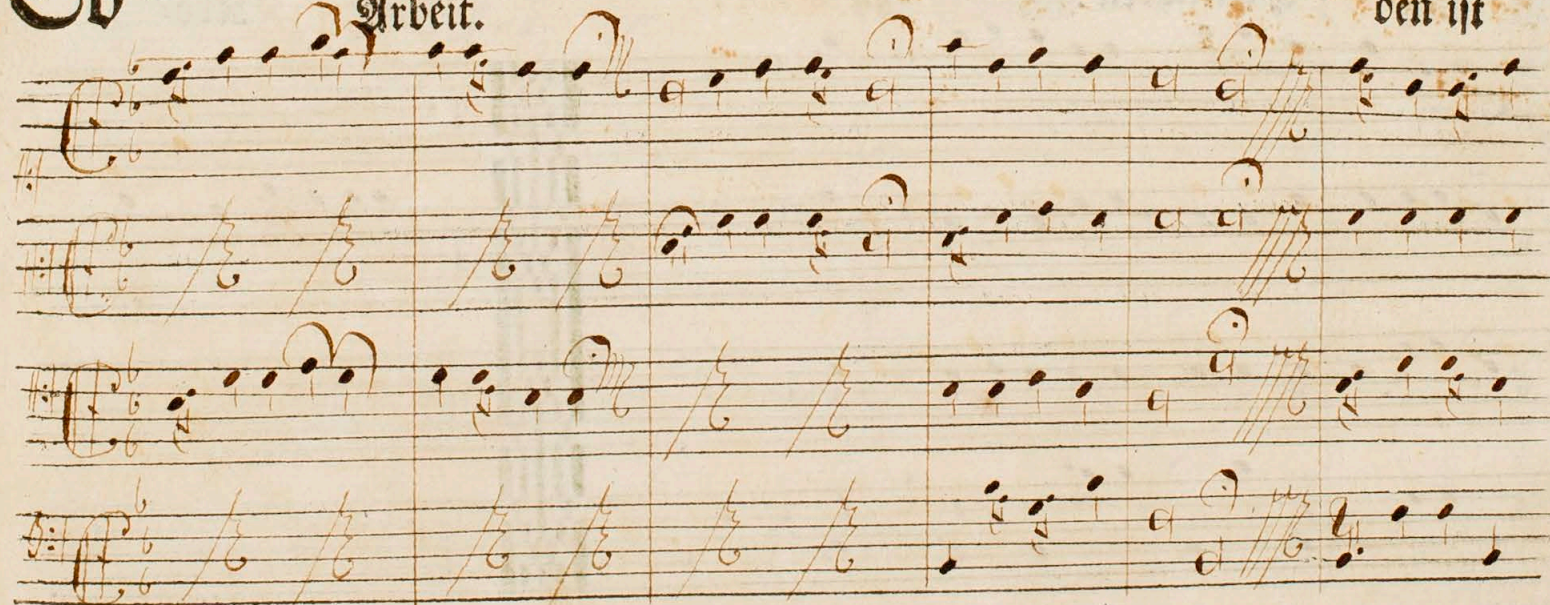 Arbeit.
den ist